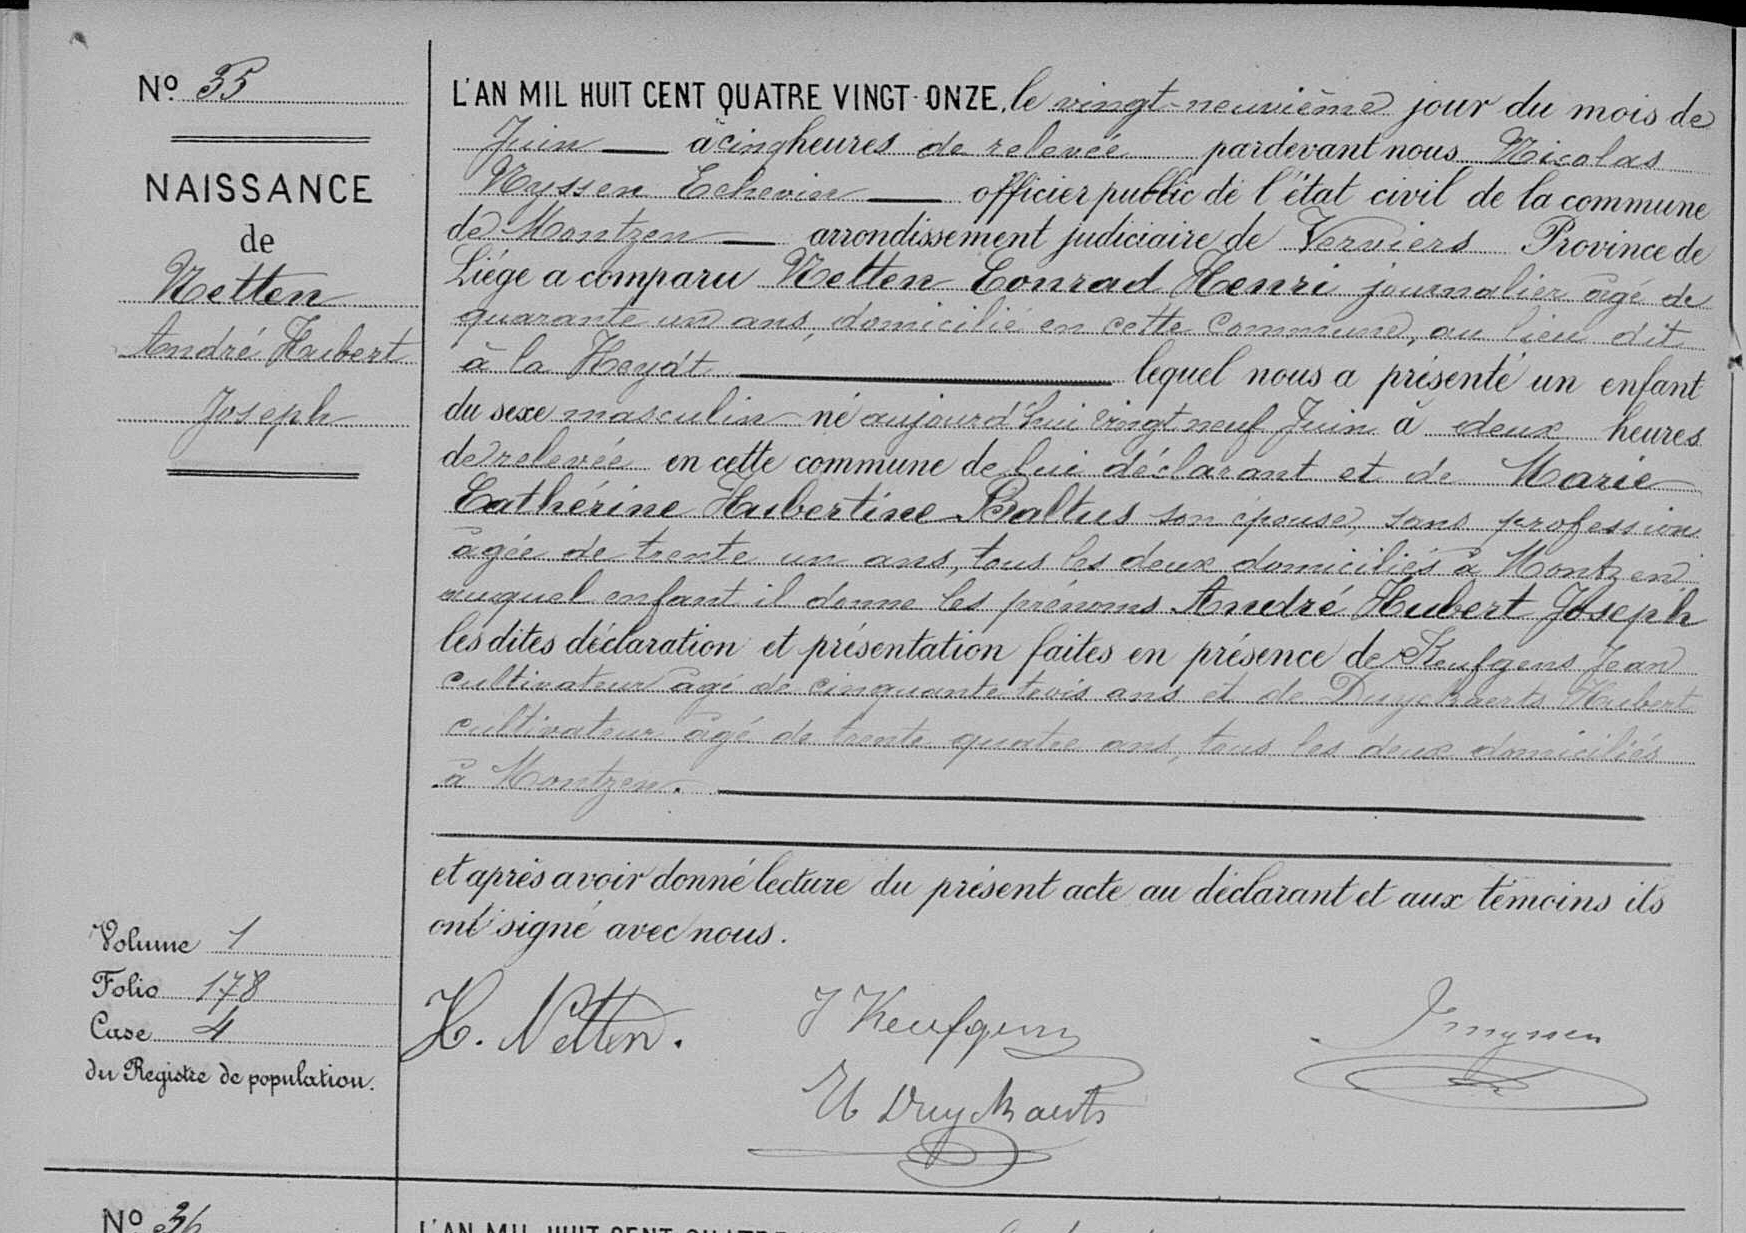 Nº 35
NAISSANCE
de
Netten
André Hubert
Joseph
L'AN MIL HUIT CENT QUATRE VINGT-ONZE, le vingt-neuvième jour du mois de
Juin — à cinq heures de relevée pardevant nous Nicolas
Nyssen Echevin — officier public de l'état civil de la commune
de Montzen — arrondissement judiciaire de Verviers Province de
Liége a comparu Netten Conrad Henri journalier âgé de
quarante un ans, domicilié en cette commune, au lieu dit
à la Heydt — lequel nous a présenté un enfant
du sexe masculin né aujourd'hui vingt neuf Juin à deux heures
de relevée en cette commune de lui déclarant et de Marie
Cathérine Hubertine Baltus son épouse, sans profession
âgée de trente un ans, tous les deux domiciliés à Montzen
auquel enfant il donne les prénoms André Hubert Joseph
les dites déclaration et présentation faites en présence de Keufgens Jean
cultivateur âgé de cinquante trois ans et de Duyckaerts Hubert
cultivateur âgé de trente quatre ans, tous les deux domiciliés
à Montzen.
et après avoir donné lecture du présent acte au déclarant et aux témoins ils
ont signé avec nous.
Volume 1
Folio 178
Case 4
du Registre de population.
H. Netten. J Keufgens
H Duyckaerts
Nº 36
L'AN MIL HUIT CENT QUATRE